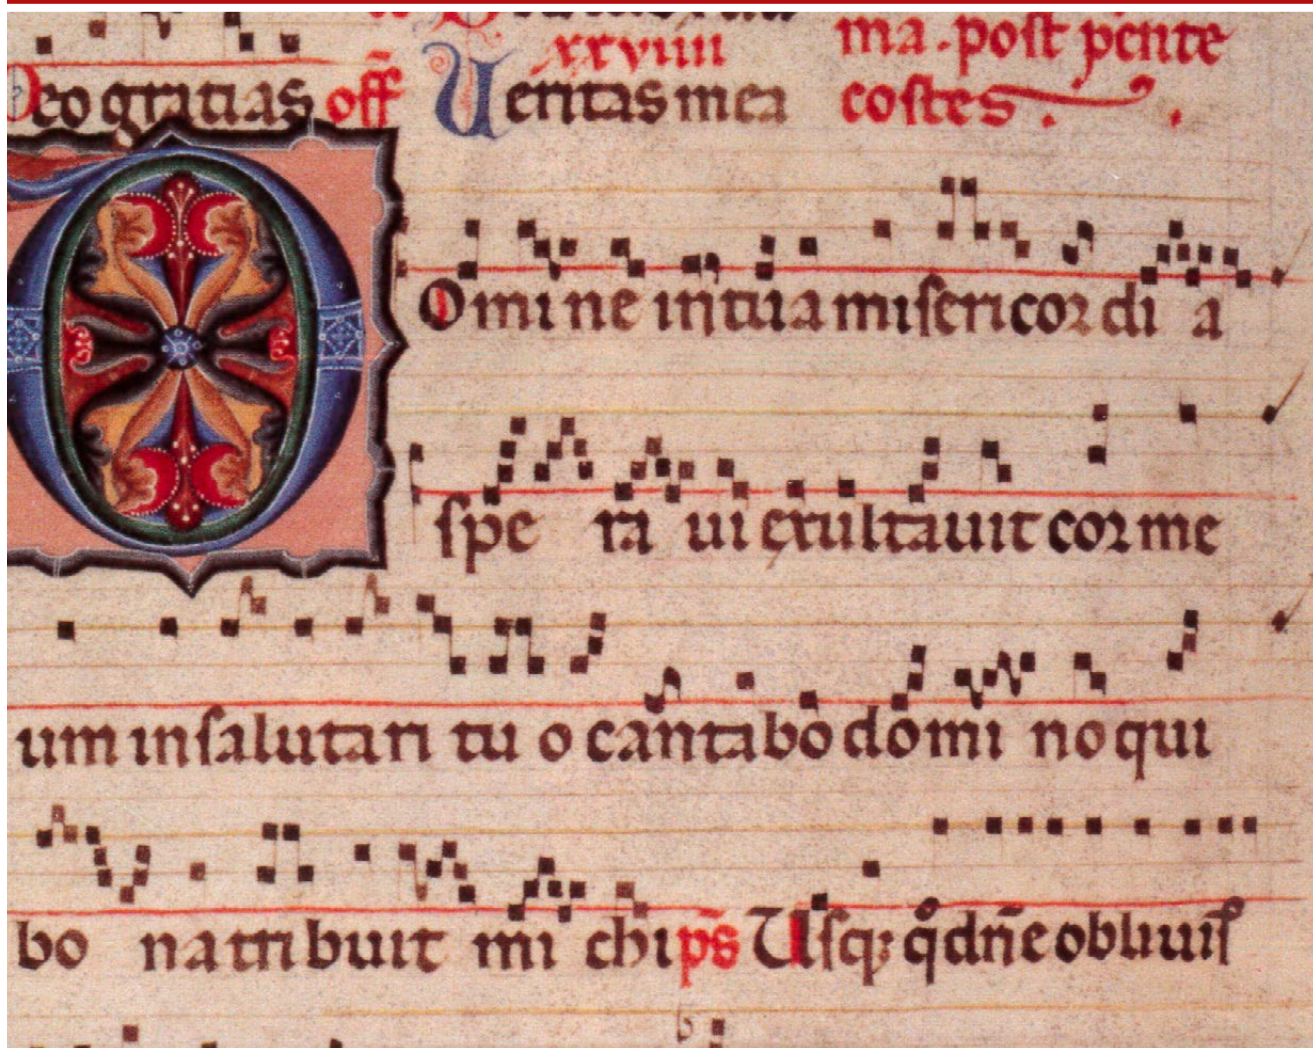 xxviiii ma. post pente
Deo gratias off̄ Ueritas mea costes.
Omine in tua misericordi a
spe ra ui exultauit cor me
um in salutari tu o cantabo domi no qui
bo na tribuit mi chi ps̄ Usq; q̊ dn̄e obliuis